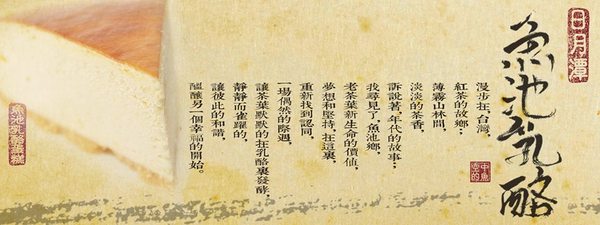 日月潭
魚池乳酪
中魚
漫步在台灣，
紅茶的故鄉：
薄霧山林間，
淡淡的茶香，
訴說著 年代的故事：
找尋見了，魚池鄉，
老茶葉新生命的價值，
夢想和堅持，在這裏，
重新找到認同，
一場偶然的際遇，
讓茶葉默默的在乳酪裏發酵，
靜靜而雀躍的，
讓彼此的和諧，
醞釀另一個幸福的開始。
魚池乳酪蛋糕